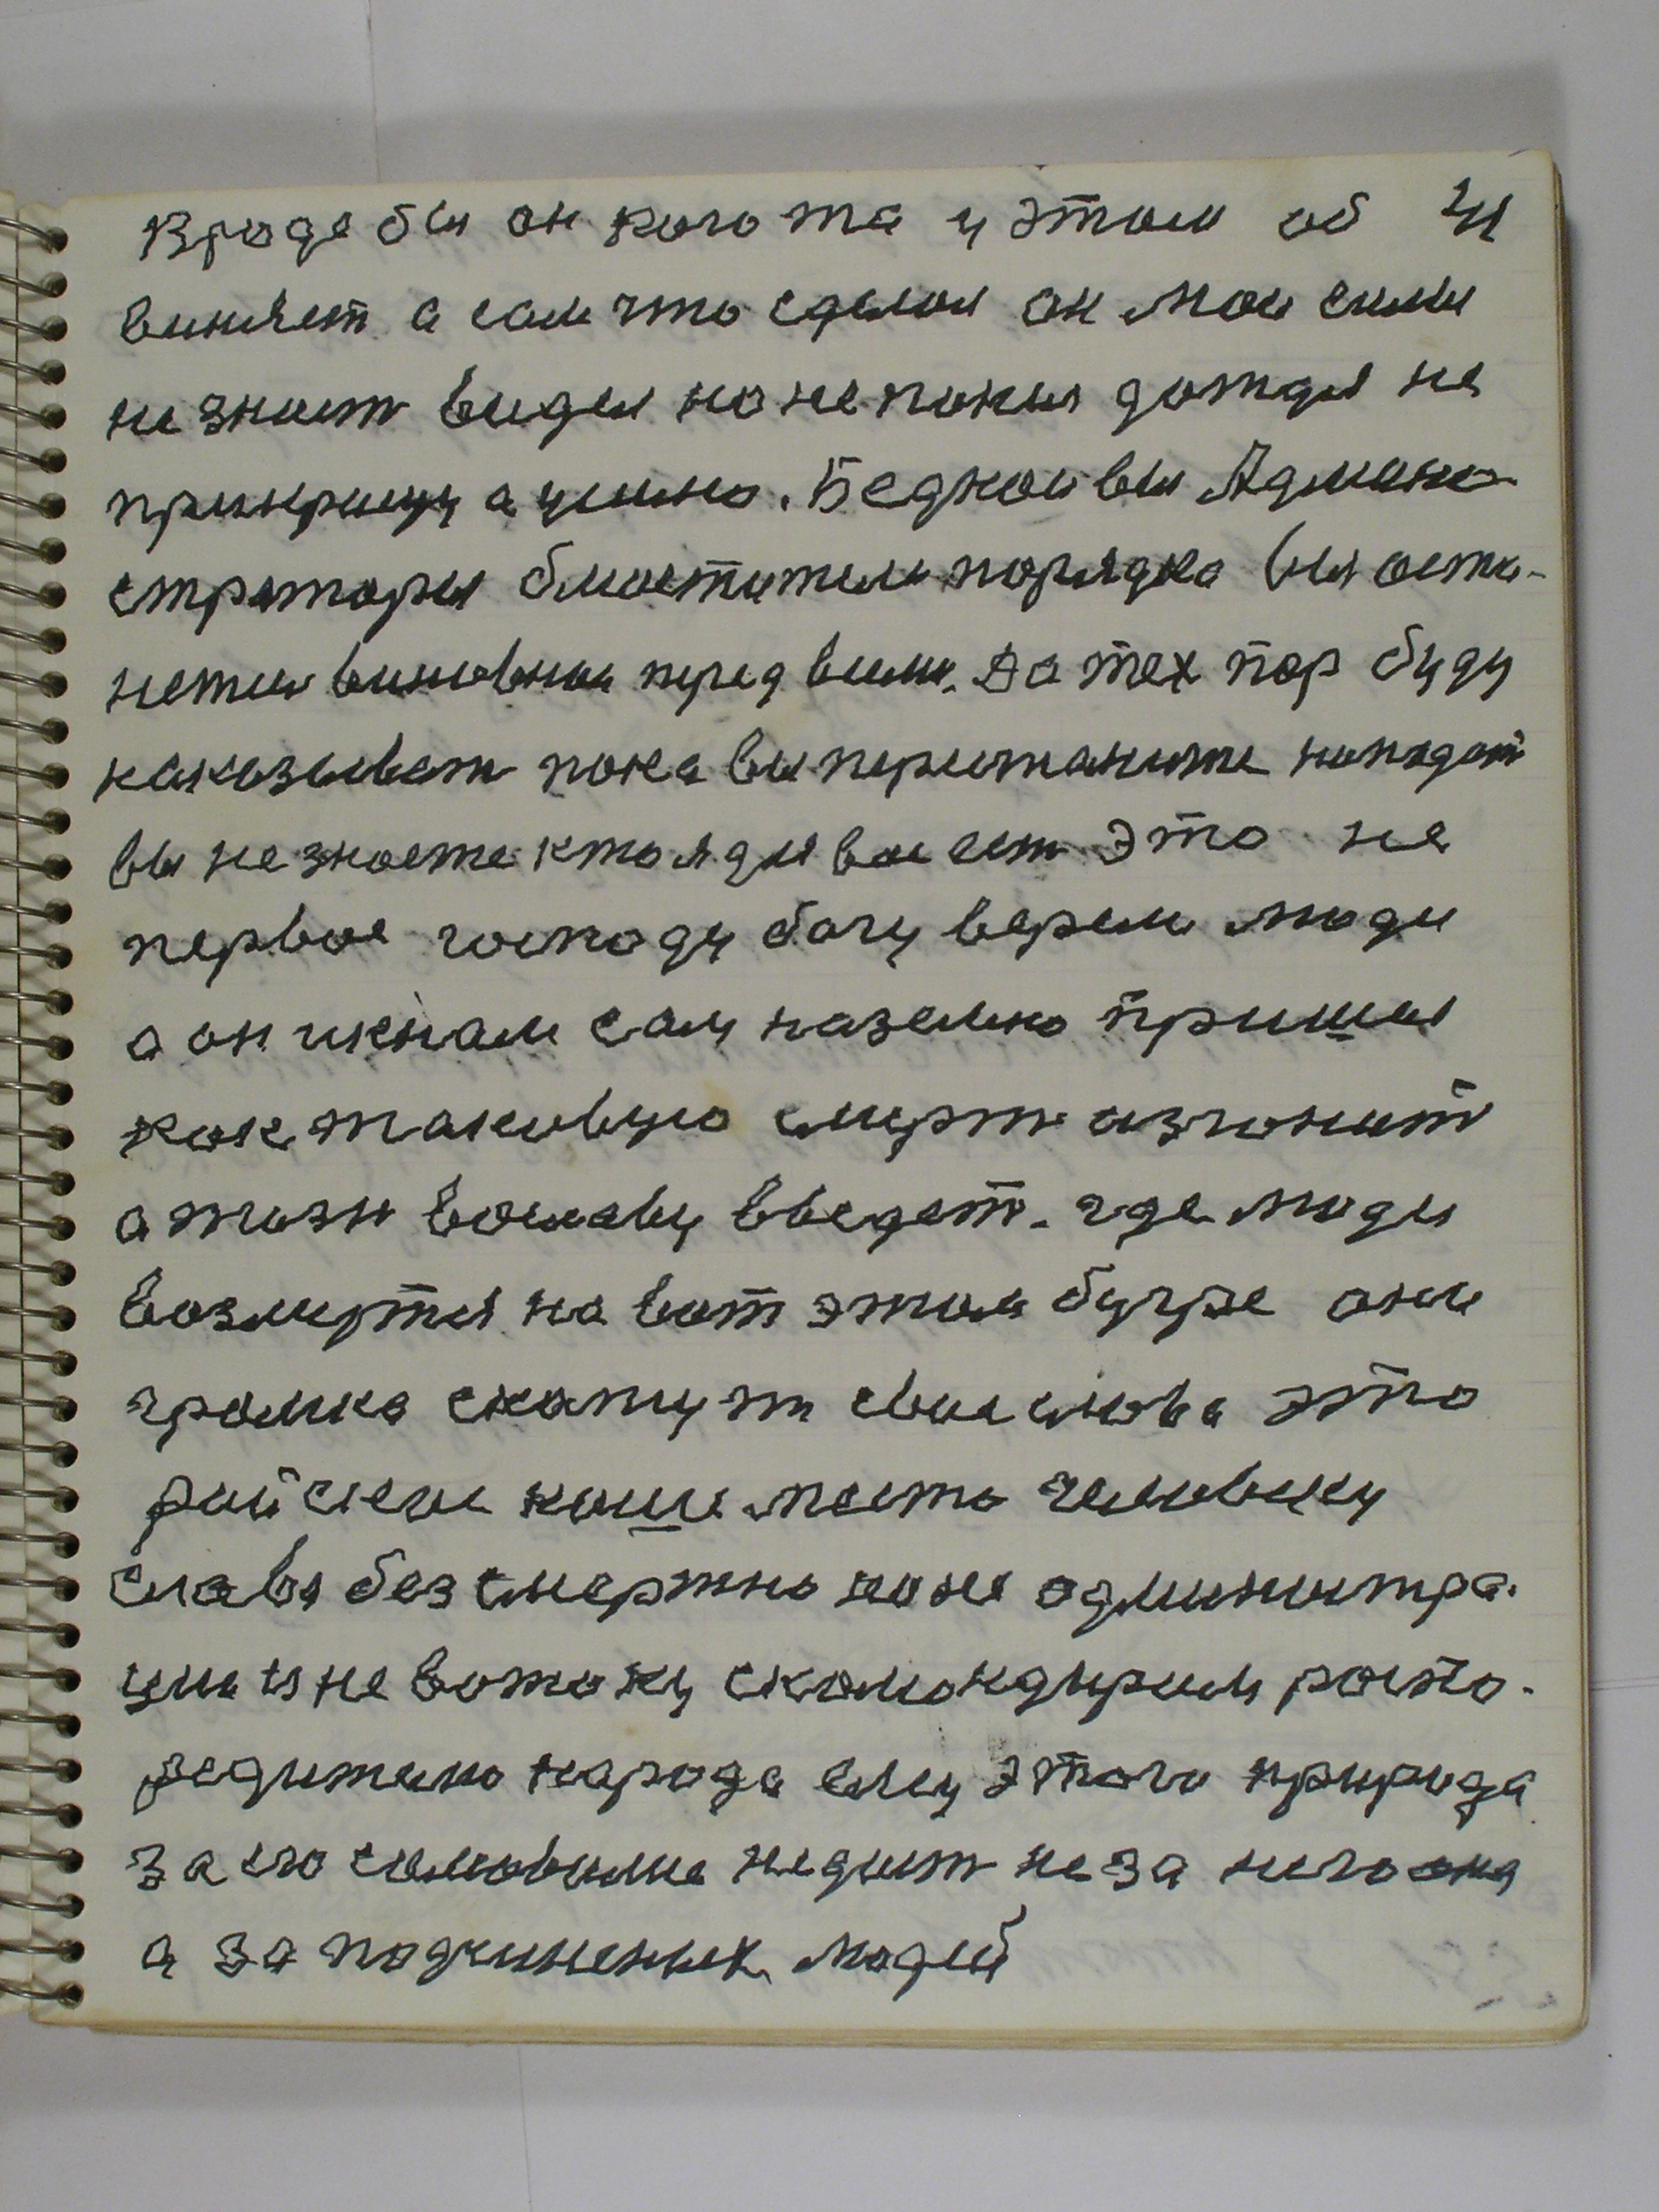 Вроде бы он кого та у этом об 41
виняет а сам что сделал он мои силы
не знает видел но не понял дотдя не
прикрищу а умино. Бедной вы Админе-
страторы блюстители порядка вы оста-
нетеи виновнои перед вими. До тех пор буду
наказыват пока вы перистаните нападат
вы не знаете кто я для вас ест Это не
первое господу богу верем люди
а он ик нам сам наземлю пришел
как таковую смерт изгонит
а жизн вославу введет. где люди
возмутся на вот этом бугре они
громко скажут свои слова это
райское наше место человеку
слава безсмертно поне администра-
цие я не вотаку скомондирим распо-
редителю народа ему этого природа
за его самоволие недист не за него одна
а за подчиненых людей